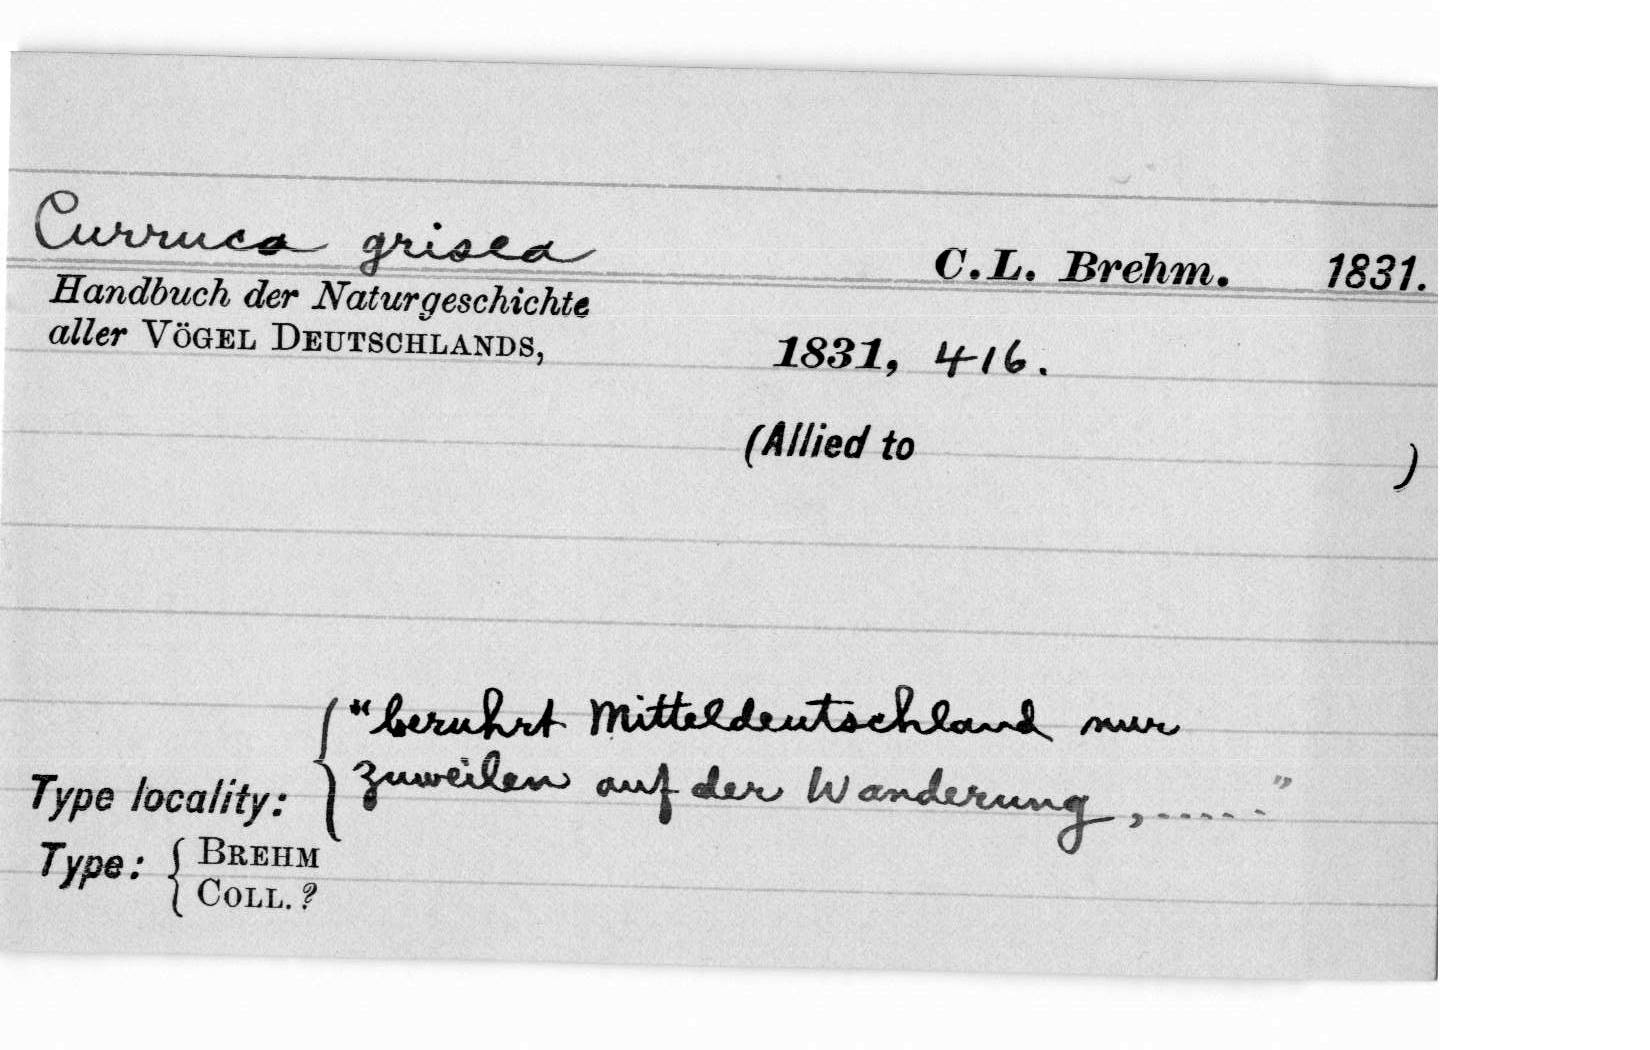 Curruca grisea C.L. Brehm. 1831.
Handbuch der Naturgeschichte
aller VÖGEL DEUTSCHLANDS, 1831, 416.
(Allied to )
"beruhrt Mitteldeutschland nur
zuweilen auf der Wanderung, ....."
Type locality:
Type: { BREHM
COLL. ?